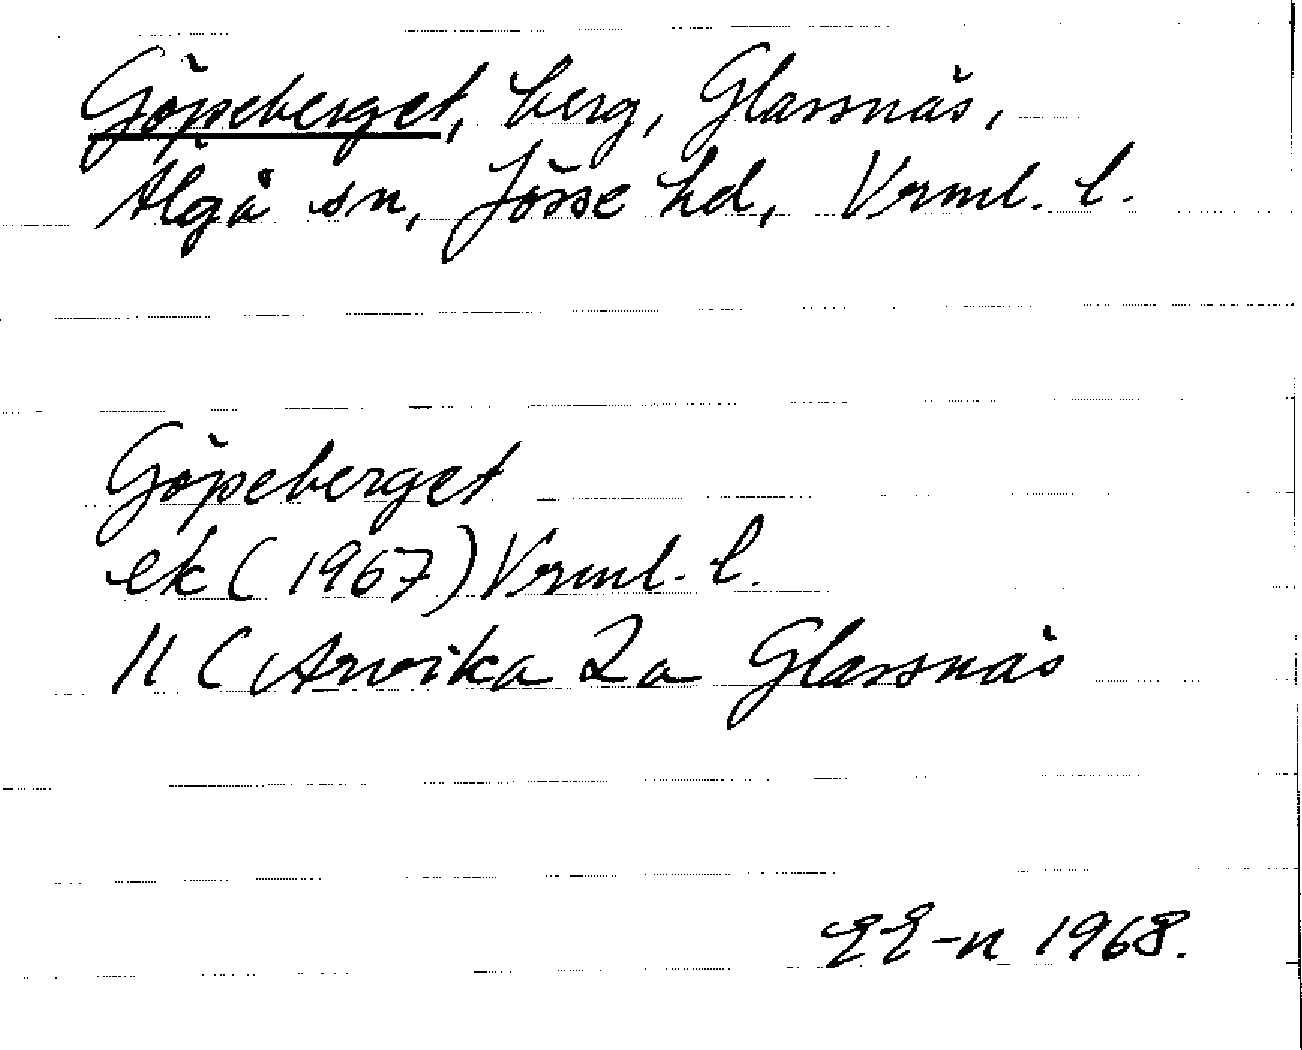 Göpeberget, berg, Glassnäs,
Älgå sn, Jösse hd, Verml. l.
Göpeberget
ek (1967) Verml. l.
11 C Arvika 2a Glassnäs
EE-n 1968.